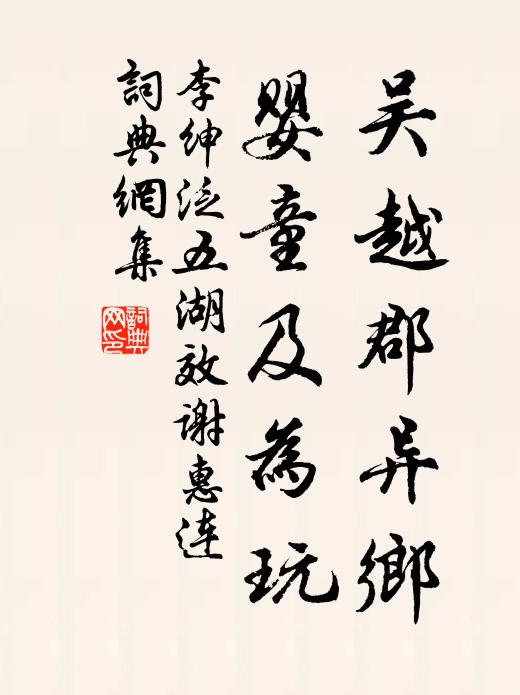 吴越郡异鄉
嬰童及為玩
李紳泛五湖效谢惠連
詞典網集
詞典网印